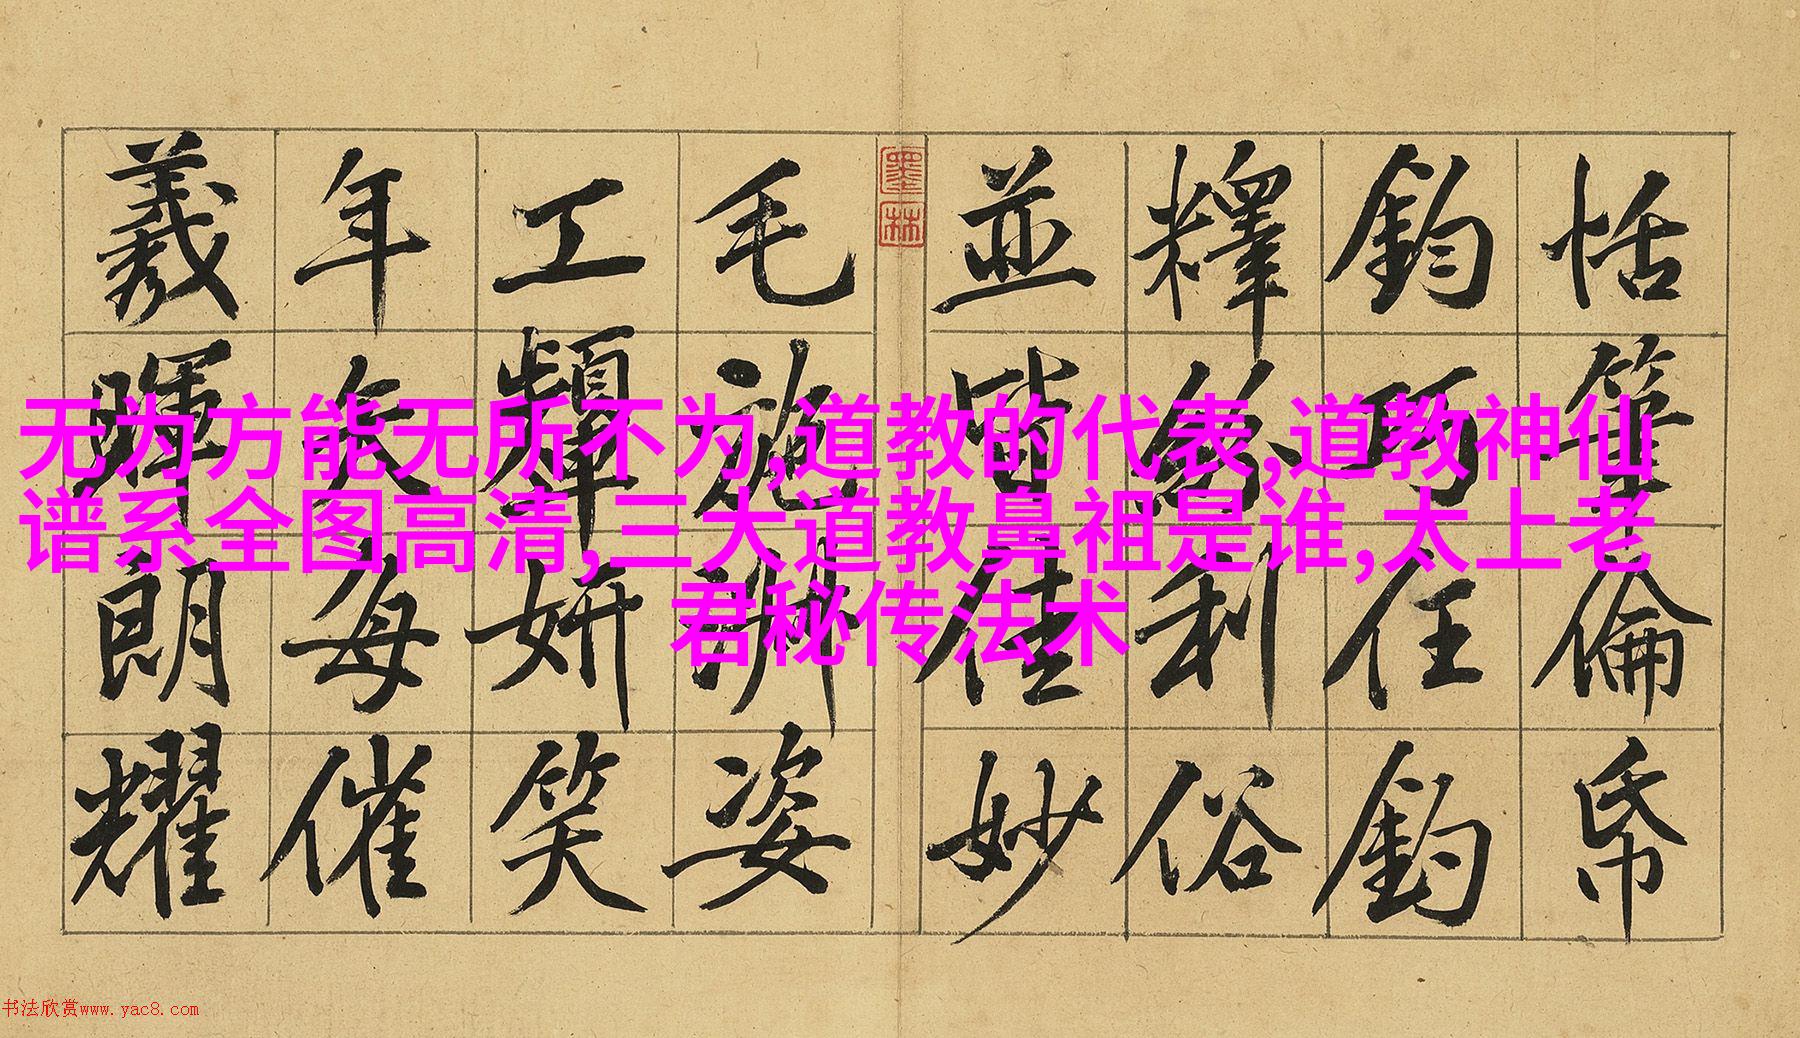 恬筆倫帋
鈞巧任釣
釋紛利俗
並皆佳妙
墨林
毛施淑姿
工顰妍笑
年矢每催
羲暉朗耀
无为方能无所不为,道教的代表,道教神仙
谱系全图高清,三大道教鼻祖是谁,太上老
君秘传法术
书法欣赏www.yac8.com